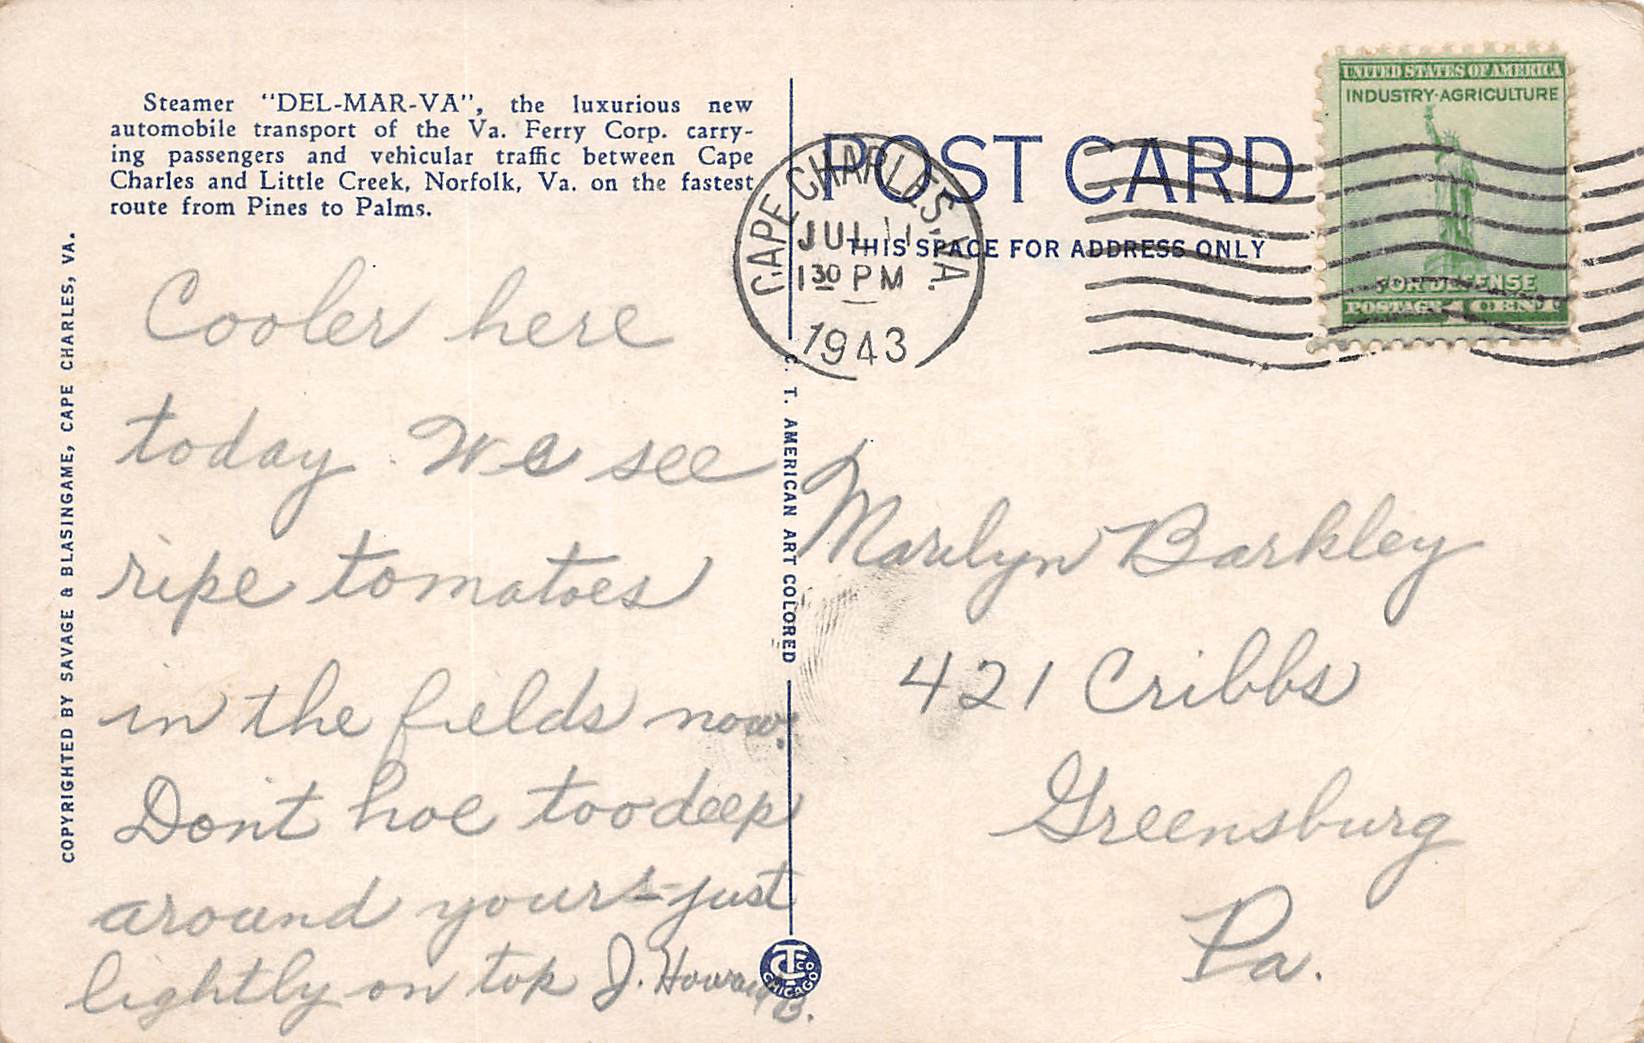 Steamer "DEL-MAR-VA", the luxurious new
automobile transport of the Va. Ferry Corp. carry-
ing passengers and vehicular traffic between Cape
Charles and Little Creek, Norfolk, Va. on the fastest
route from Pines to Palms.
COPYRIGHTED BY SAVAGE & BLASINGAME, CAPE CHARLES, VA.
Cooler here
today. We see
ripe tomatoes
in the fields now.
Dont hoe too deep
around yours-just
lightly on top J. Howard B.
C. T. AMERICAN ART COLORED
CTCO
CHICAGO
POST CARD
THIS SPACE FOR ADDRESS ONLY
CAPE CHARLES, VA.
JUL 11
1 30 PM
1943
UNITED STATES OF AMERICA
INDUSTRY·AGRICULTURE
FOR DEFENSE
POSTAGE 1 CENT
Marilyn Barkley
421 Cribbs
Greensburg
Pa.